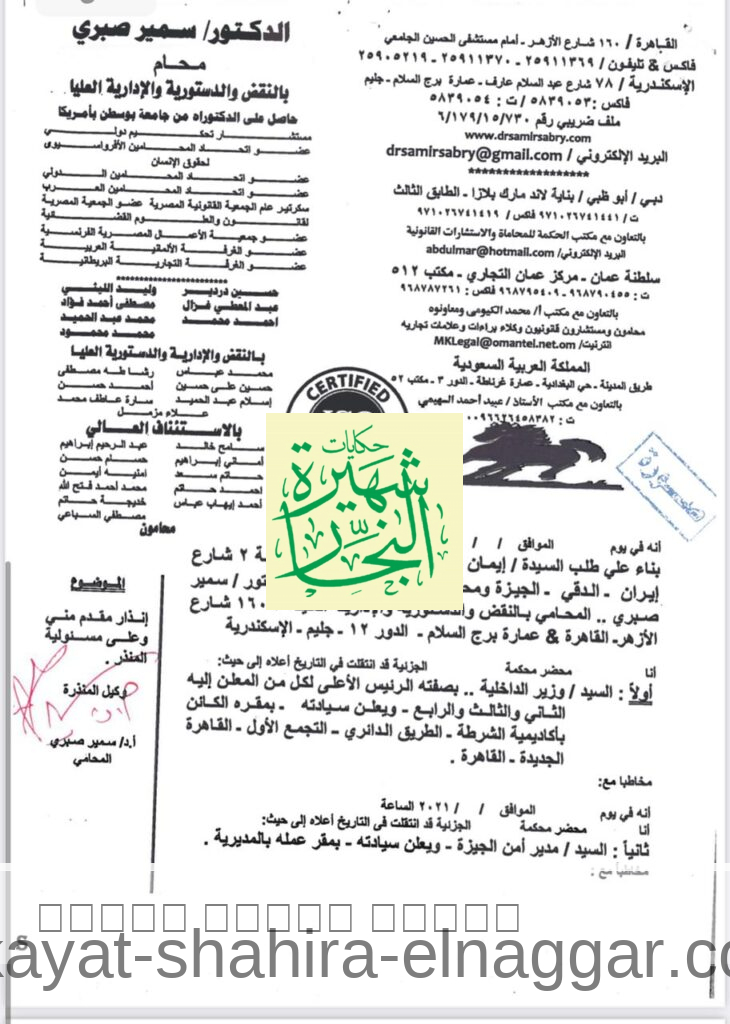 الدكتور/ سمير صبري
محام
بالنقض والدستورية والإدارية العليا
حاصل على الدكتوراه من جامعة بوسطن بأمريكا
مستشار تحكيم دولي
عضو اتحاد المحامين الأفروآسيوى
لحقوق الإنسان
عضو اتحاد المحامين الدولي
عضو اتحاد المحامين العرب
سكرتير عام الجمعية القانونية المصرية عضو الجمعية المصرية
لقانون والعلوم القضائية
عضو جمعية الأعمال المصرية الفرنسية
عضو الغرفة الألمانية العربية
عضو الغرفة التجارية البريطانية
************************
حسين دردير وليد الليثي
عبد المعطي غزال مصطفى أحمد فؤاد
احمد محمد محمد عبد الحميد
محمد محمود
بالنقض والإدارية والدستورية العليا
محمد عباس رشا طه مصطفى
حسين علي حسين أحمد حسن
إسلام عبد الحميد سارة عاطف محمد
علاء مزمل
بالاستئناف العالي
سامح خالد عبد الرحيم إبراهيم
أماني إبراهيم حسام حسن
حاتم سعد امنيه أيمن
احمد حاتم محمد أحمد فتح الله
أحمد إيهاب عباس خديجة حاتم
مصطفي السباعي
محامون
القاهرة / ١٦٠ شارع الأزهر - أمام مستشفى الحسين الجامعي
فاكس & تليفون / ٢٥٩١١٣٦٩ - ٢٥٩١١٣٧٠ - ٢٥٩٠٥٢١٩
الإسكندرية / ٧٨ شارع عبد السلام عارف - عمارة برج السلام - جليم
فاكس : ٥٨٣٩٠٥٣ / ت : ٥٨٣٩٠٥٤
ملف ضريبي رقم ٦/١٧٩/١٥/٧٣٠
www.drsamirsabry.com
البريد الإلكتروني / drsamirsabry@gmail.com
******************
دبي / أبو ظبي / بناية لاند مارك بلازا - الطابق الثالث
ت / ٩٧١٠٢٦٧٤١٤٤١ فاكس / ٩٧١٠٢٦٧٤١٤١٩
بالتعاون مع مكتب الحكمة للمحاماة والاستشارات القانونية
البريد الإلكتروني/ abdulmar@hotmail.com
سلطنة عمان - مركز عمان التجاري - مكتب ٥١٢
ت : ٩٦٨٧٩٠٤٥٥ - ٩٦٨٧٩٥٤٠٩ فاكس : ٩٦٨٧٨٧٢٦١
بالتعاون مع مكتب / أ/ محمد الكيومى ومعاونوه
محامون ومستشارون قانونيون وكلاء براءات وعلامات تجاريه
انترنيت/ MKLegal@omantel.net.om
المملكة العربية السعودية
طريق المدينة - حي البغدادية - عمارة غرناطة - الدور ٣ - مكتب ٥٢
بالتعاون مع مكتب الأستاذ / عبيد أحمد السهيمي
ت : ٠٠٩٦٦٢٦٤٥٨٣٨٢
CERTIFIED
حكايات
شهيرة
النجار
أنه في يوم الموافق / /
بناء علي طلب السيدة / إيمان ٢ شارع
إيران - الدقي - الجيزة ومح تور / سمير
صبري .. المحامي بالنقض والدستورية والإدارية ١٦٠ شارع
الأزهر- القاهرة & عمارة برج السلام - الدور ١٢ - جليم - الإسكندرية
أنا محضر محكمة الجزئية قد انتقلت في التاريخ أعلاه إلى حيث:
أولاً : السيد / وزير الداخلية .. بصفته الرئيس الأعلى لكل من المعلن إليه
الثاني والثالث والرابع - ويعلن سيادته - بمقره الكائن
بأكاديمية الشرطة - الطريق الدائري - التجمع الأول - القاهرة
الجديدة - القاهرة .
مخاطبا مع:
أنه في يوم الموافق / / ٢٠٢١ الساعة
أنا محضر محكمة الجزئية قد انتقلت في التاريخ أعلاه إلى حيث:
ثانياً : السيد / مدير أمن الجيزة - ويعلن سيادته - بمقر عمله بالمديرية .
مخاطبا مع :
الموضوع
إنذار مقدم مني
وعلى مسئولية
المنذر .
وكيل المنذرة
أ.د/ سمير صبري
المحامي
kayat-shahira-elnaggar.co